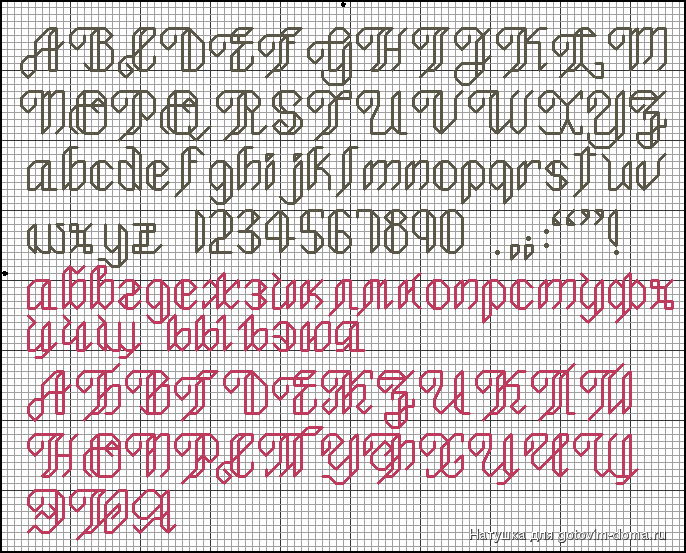 A B C D E F G H I J K L M
N O P Q R S T U V W X Y Z
a b c d e f g h i j k l m n o p q r s t u v
w x y z 1 2 3 4 5 6 7 8 9 0 . , „ : “ ” !
а б в г д е ж з й к л м н о п р с т у ф х
ц ч щ ъ ы ь э ю я
А Б В Г Д Е Ж З И К Л М
Н О П Р С Т У Ф Х Ц Ч Щ
Э Ю Я
Натушка для gotovim-doma.ru